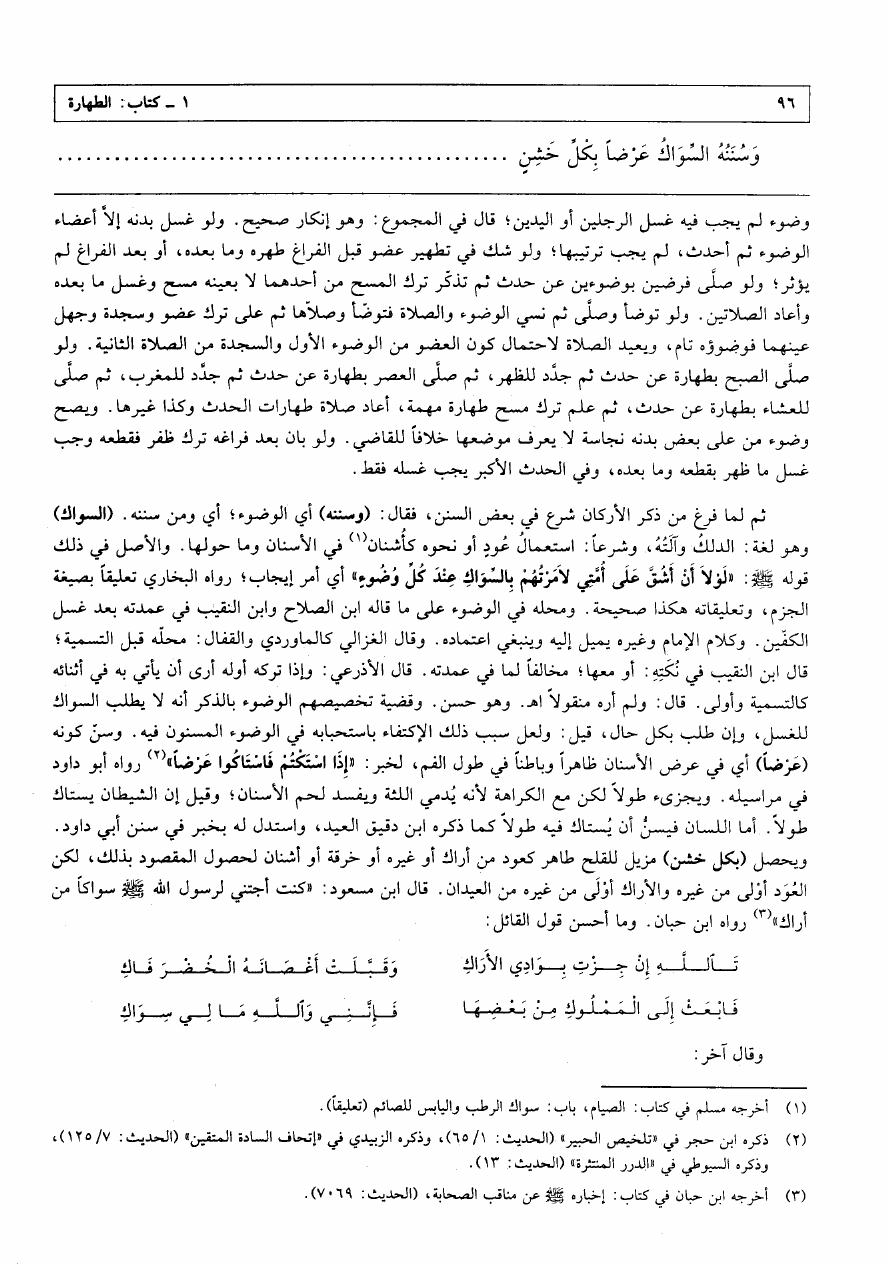 ٩٦ ١ ـ كتاب: الطهارة
وَسُنَنُهُ السِّوَاكُ عَرْضاً بِكُلِّ خَشِنٍ ................................................
وضوء لم يجب فيه غسل الرجلين أو اليدين؛ قال في المجموع: وهو إنكار صحيح. ولو غسل بدنه إلاَّ أعضاء
الوضوء ثم أحدث، لم يجب ترتيبها؛ ولو شك في تطهير عضو قبل الفراغ طهره وما بعده، أو بعد الفراغ لم
يؤثر؛ ولو صلَّى فرضين بوضوءين عن حدث ثم تذكّر ترك المسح من أحدهما لا بعينه مسح وغسل ما بعده
وأعاد الصلاتين. ولو توضأ وصلَّى ثم نسي الوضوء والصلاة فتوضّأ وصلاّها ثم على ترك عضو وسجدة وجهل
عينهما فوضوؤه تام، ويعيد الصلاة لاحتمال كون العضو من الوضوء الأول والسجدة من الصلاة الثانية. ولو
صلَّى الصبح بطهارة عن حدث ثم جدَّد للظهر، ثم صلَّى العصر بطهارة عن حدث ثم جدَّد للمغرب، ثم صلَّى
للعشاء بطهارة عن حدث، ثم علم ترك مسح طهارة مهمة، أعاد صلاة طهارات الحدث وكذا غيرها. ويصح
وضوء من على بعض بدنه نجاسة لا يعرف موضعها خلافاً للقاضي. ولو بان بعد فراغه ترك ظفر فقطعه وجب
غسل ما ظهر بقطعه وما بعده، وفي الحدث الأكبر يجب غسله فقط.
ثم لما فرغ من ذكر الأركان شرع في بعض السنن، فقال: (وسننه) أي الوضوء؛ أي ومن سننه. (السواك)
وهو لغة: الدلكُ وآلَتُهُ، وشرعاً: استعمالُ عُودٍ أو نحوه كأُشنان(١) في الأسنان وما حولها. والأصل في ذلك
قوله ﷺ: «لَوْلاَ أَنْ أَشُقَّ عَلَى أُمَّتِي لأَمَرْتُهُمْ بِالسِّوَاكِ عِنْدَ كُلِّ وُضُوءٍ» أي أمر إيجاب؛ رواه البخاري تعليقاً بصيغة
الجزم، وتعليقاته هكذا صحيحة. ومحله في الوضوء على ما قاله ابن الصلاح وابن النقيب في عمدته بعد غسل
الكفّين. وكلام الإمام وغيره يميل إليه وينبغي اعتماده. وقال الغزالي كالماوردي والقفال: محلّه قبل التسمية؛
قال ابن النقيب في نُكَتِهِ: أو معها؛ مخالفاً لما في عمدته. قال الأذرعي: وإذا تركه أوله أرى أن يأتي به في أثنائه
كالتسمية وأولى. قال: ولم أره منقولاً اهـ. وهو حسن. وقضية تخصيصهم الوضوء بالذكر أنه لا يطلب السواك
للغسل، وإن طلب بكل حال، قيل: ولعل سبب ذلك الإكتفاء باستحبابه في الوضوء المسنون فيه. وسنّ كونه
(عَرْضاً) أي في عرض الأسنان ظاهراً وباطناً في طول الفم، لخبر: «إِذَا اسْتَكْتُمْ فَاسْتَاكُوا عَرْضاً»(٢) رواه أبو داود
في مراسيله. ويجزىء طولاً لكن مع الكراهة لأنه يُدمي اللثة ويفسد لحم الأسنان؛ وقيل إن الشيطان يستاك
طولاً. أما اللسان فيسنُّ أن يُستاك فيه طولاً كما ذكره ابن دقيق العيد، واستدل له بخبر في سنن أبي داود.
ويحصل (بكل خشن) مزيل للقلح طاهر كعود من أراك أو غيره أو خرقة أو أشنان لحصول المقصود بذلك، لكن
العُوَد أوْلى من غيره والأراك أوْلَى من غيره من العيدان. قال ابن مسعود: «كنت أجتني لرسول الله ﷺ سواكاً من
أراك»(٣) رواه ابن حبان. وما أحسن قول القائل:
تَـٱللَّهِ إِنْ جِزْتِ بِوَادِي الأَرَاكِ وَقَبَّلَتْ أَغْصَانَهُ الْخُضْرَ فَاكِ
فَابْعَثْ إِلَى الْمَمْلُوكِ مِنْ بَعْضِهَا فَإِنَّنِي وَٱللَّهِ مَا لِي سِوَاكِ
وقال آخر:
(١) أخرجه مسلم في كتاب: الصيام، باب: سواك الرطب واليابس للصائم (تعليقاً).
(٢) ذكره ابن حجر في «تلخيص الحبير» (الحديث: ١/ ٦٥)، وذكره الزبيدي في «إتحاف السادة المتقين» (الحديث: ٧/ ١٢٥)،
وذكره السيوطي في «الدرر المنتثرة» (الحديث: ١٣).
(٣) أخرجه ابن حبان في كتاب: إخباره ﷺ عن مناقب الصحابة، (الحديث: ٧٠٦٩).